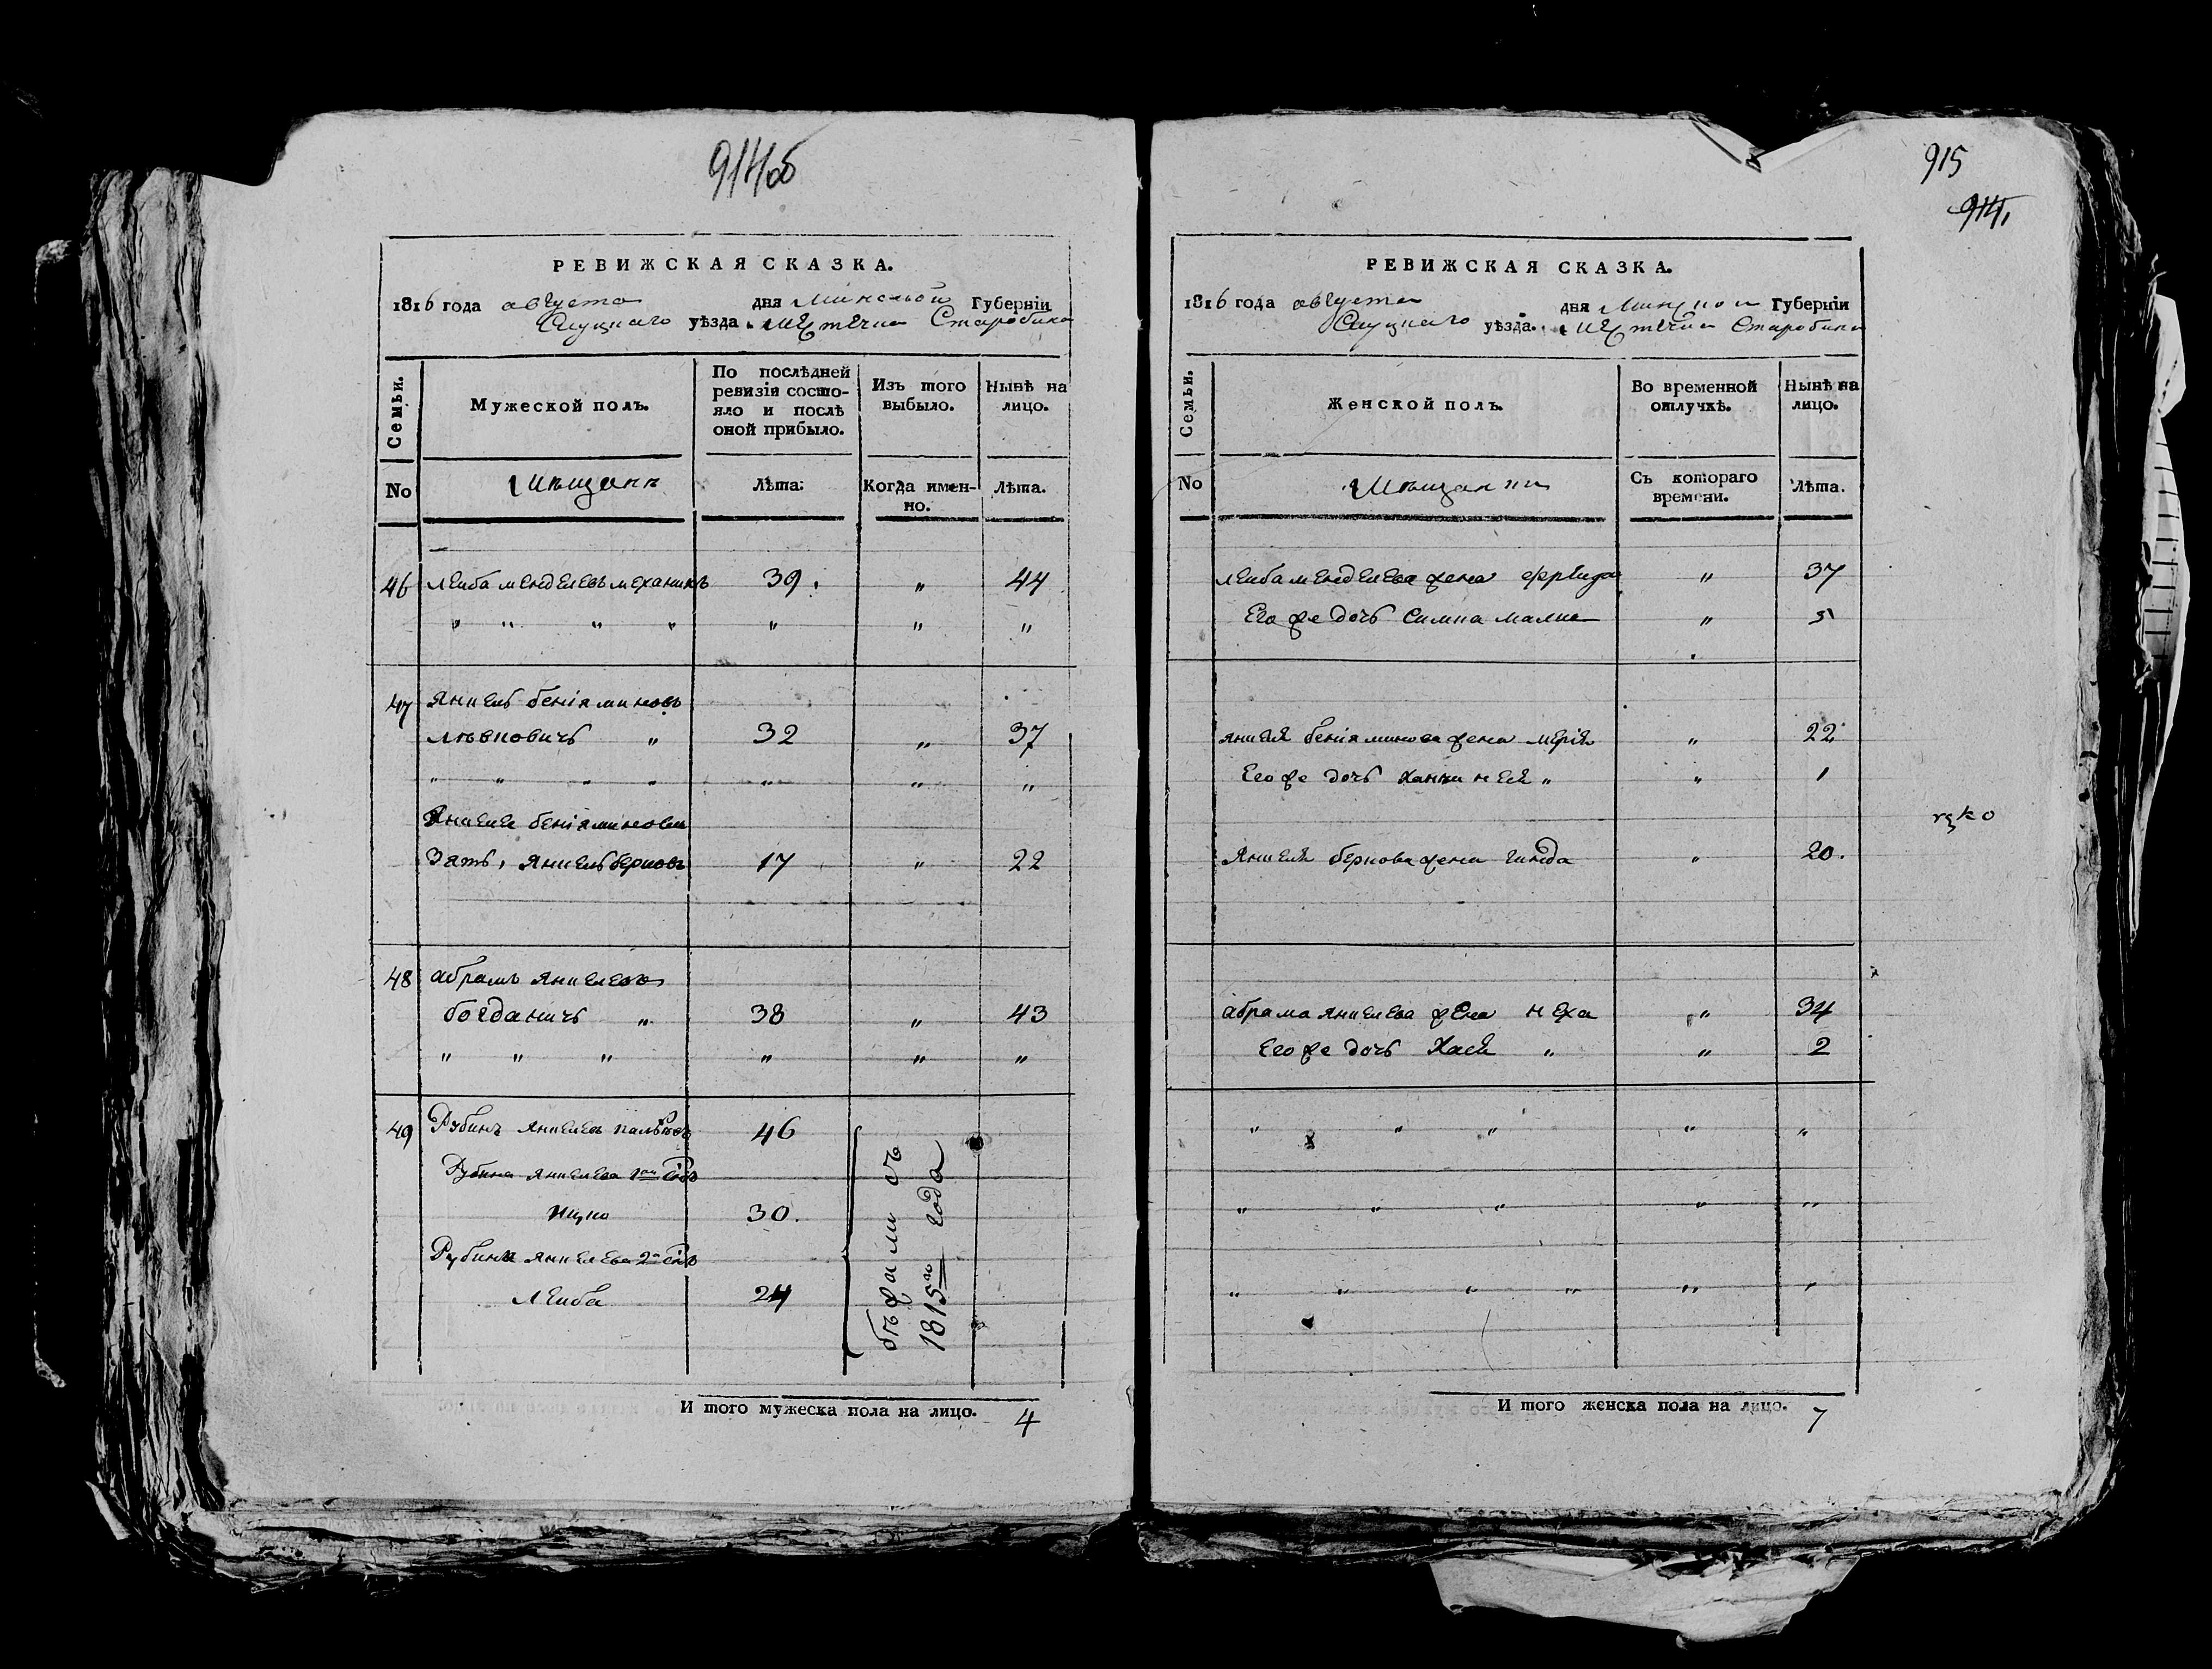 914об
РЕВИЖСКАЯ СКАЗКА.
1816 года августа дня Минской Губерніи
Слуцкаго уѣзда мѣстечка Старобина
Семьи.
Мужеской полъ.
По послѣдней ревизіи состояло и послѣ оной прибыло.
Изъ того выбыло.
Нынѣ на лицо.
No
Мѣщанъ
Лѣта.
Когда именно.
Лѣта.
46 Леиба Менделевъ Механикъ 39. " 44
" " " " " " "
47 Янкель Беніяминовъ
Левковичъ " 32 " 37
" " " " " " "
Янкеля Беніяминова
Зять, Янкель Берковъ 17 " 22
48 Абрамъ Янкелевъ
Богданичъ " 38 " 43
" " " " " "
49 Рубинъ Янкелевъ 46
Рубина Янкелева 1ой сынъ
Ицко 30.
Рубина Янкелева 2й сынъ
Леиба 24
бѣжали съ
1815го года
И того мужеска пола на лицо. 4
915
914,
РЕВИЖСКАЯ СКАЗКА.
1816 года августа дня Минской Губерніи
Слуцкаго уѣзда мѣстечка Старобина
Семьи.
Женской полъ.
Во временной отлучкѣ.
Нынѣ на лицо.
No
Мѣщанки
Съ котораго времени.
Лѣта.
Леиба Менделева жена Фрейда " 37
Его же дочь Симка Малка " 5
Янкеля Беніяминова жена Мерія " 22
Его же дочь " " 1
цко
Янкеля Беркова жена Гинда " 20.
Абрама Янкелева жена Неха " 34
Его же дочь Хася " " 2
" " " " "
" " " " "
" " " " " "
И того женска пола на лицо. 7